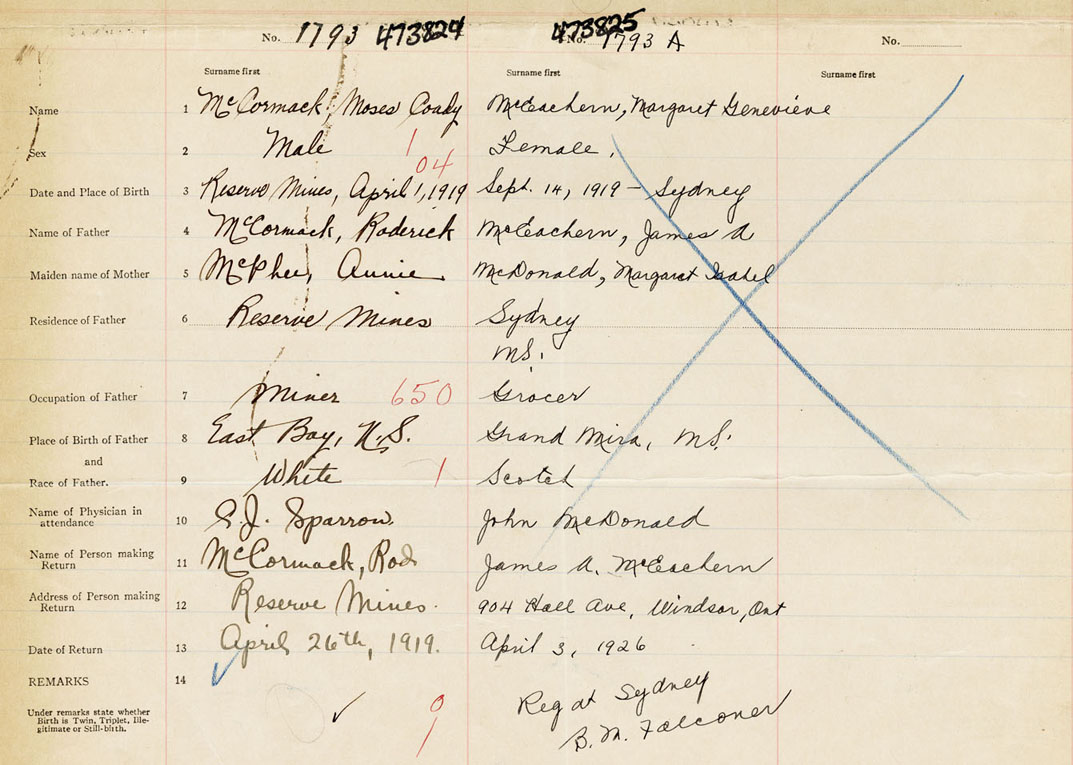 No. 1793 473824 473825 No. 1793 A No.
Surname first Surname first Surname first
Name 1 McCormack, Moses Coady McEachern, Margaret Genevieve
Sex 2 Male 1 Female.
04
Date and Place of Birth 3 Reserve Mines, April 1, 1919 Sept. 14, 1919 - Sydney
Name of Father 4 McCormack, Roderick McEachern, James A
Maiden name of Mother 5 McPhee, Annie McDonald, Margaret Isabel
Residence of Father 6 Reserve Mines Sydney
N.S.
Occupation of Father 7 Miner 650 Grocer
Place of Birth of Father 8 East Bay, N.S. Grand Mira, N.S.
and
Race of Father. 9 White 1 Scotch
Name of Physician in
attendance 10 Sparrow John McDonald
Name of Person making
Return 11 McCormack, Rod James A. McEachern
Address of Person making
Return 12 Reserve Mines. 904 Hall Ave, Windsor, Ont
Date of Return 13 April 26th, 1919. April 3, 1926
REMARKS 14
Under remarks state whether
Birth is Twin, Triplet, Ille-
gitimate or Still-birth.
Reg at Sydney
B. M. Falconer